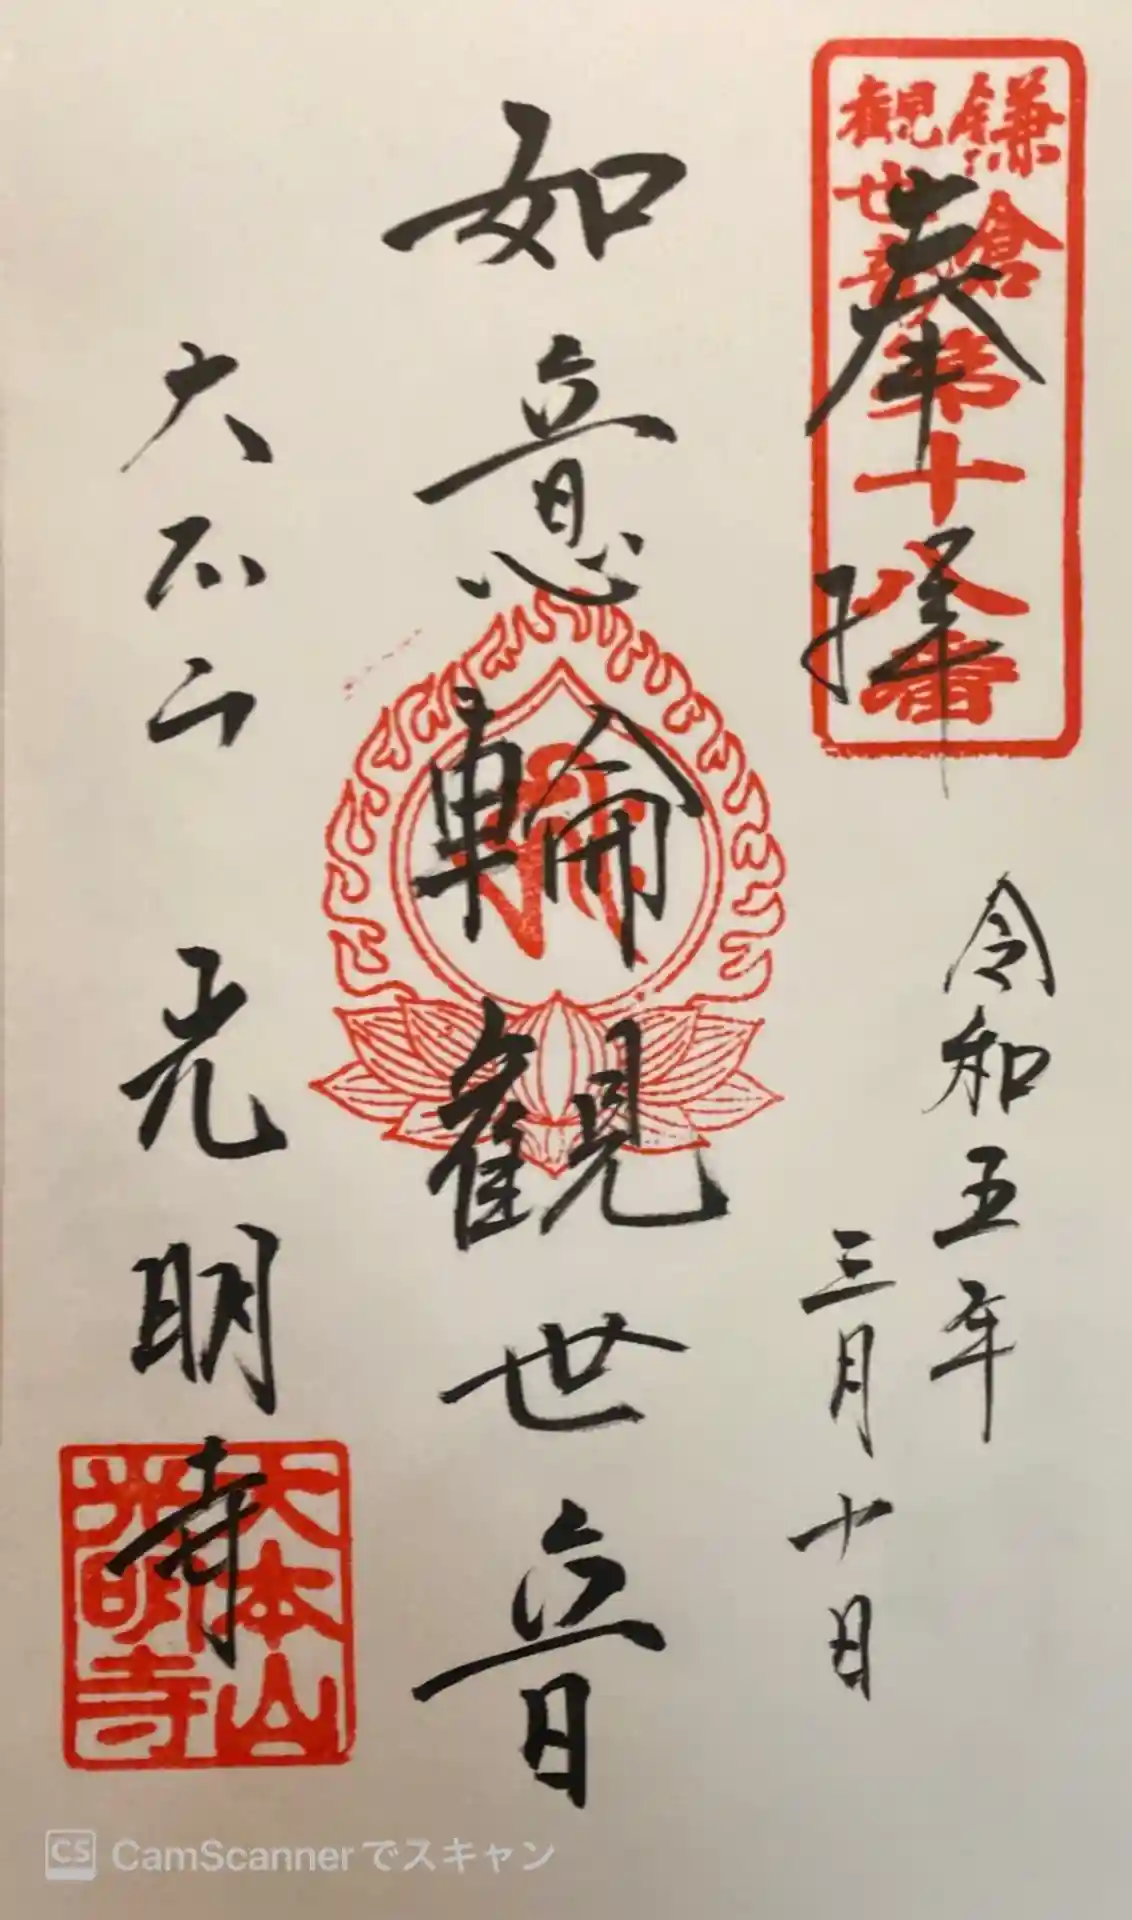 鎌倉
観世音
第十八番
奉拝
令和五年
三月十日
如意輪観世音
大本山
光明寺
大本山
光明寺
CS CamScannerでスキャン